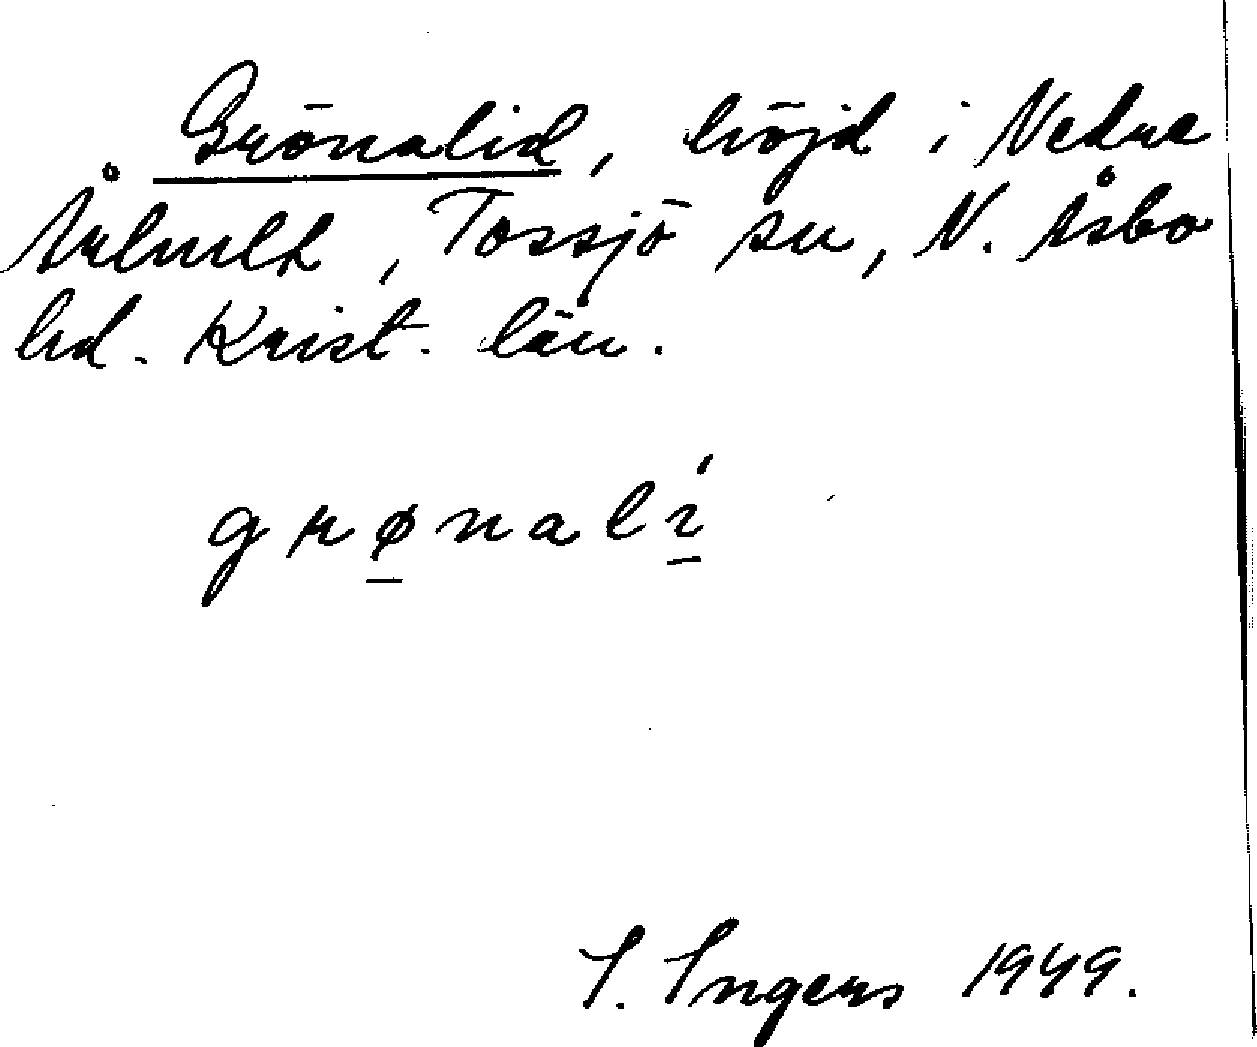 Grönalid, höjd i Nedre
Århult, Tossjö sn, N. Åsbo
hd. Krist. län.
grønalí
I. Ingers 1949.